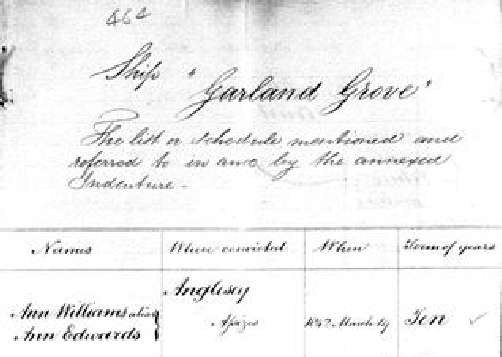 464
Ship "Garland Grove"
The list or schedule mentioned and
referred to in and by the annexed
Indenture.
Names Where convicted When Term of years
Anglesey
Ann Williams alias Assizes March Ten
Ann Edwards